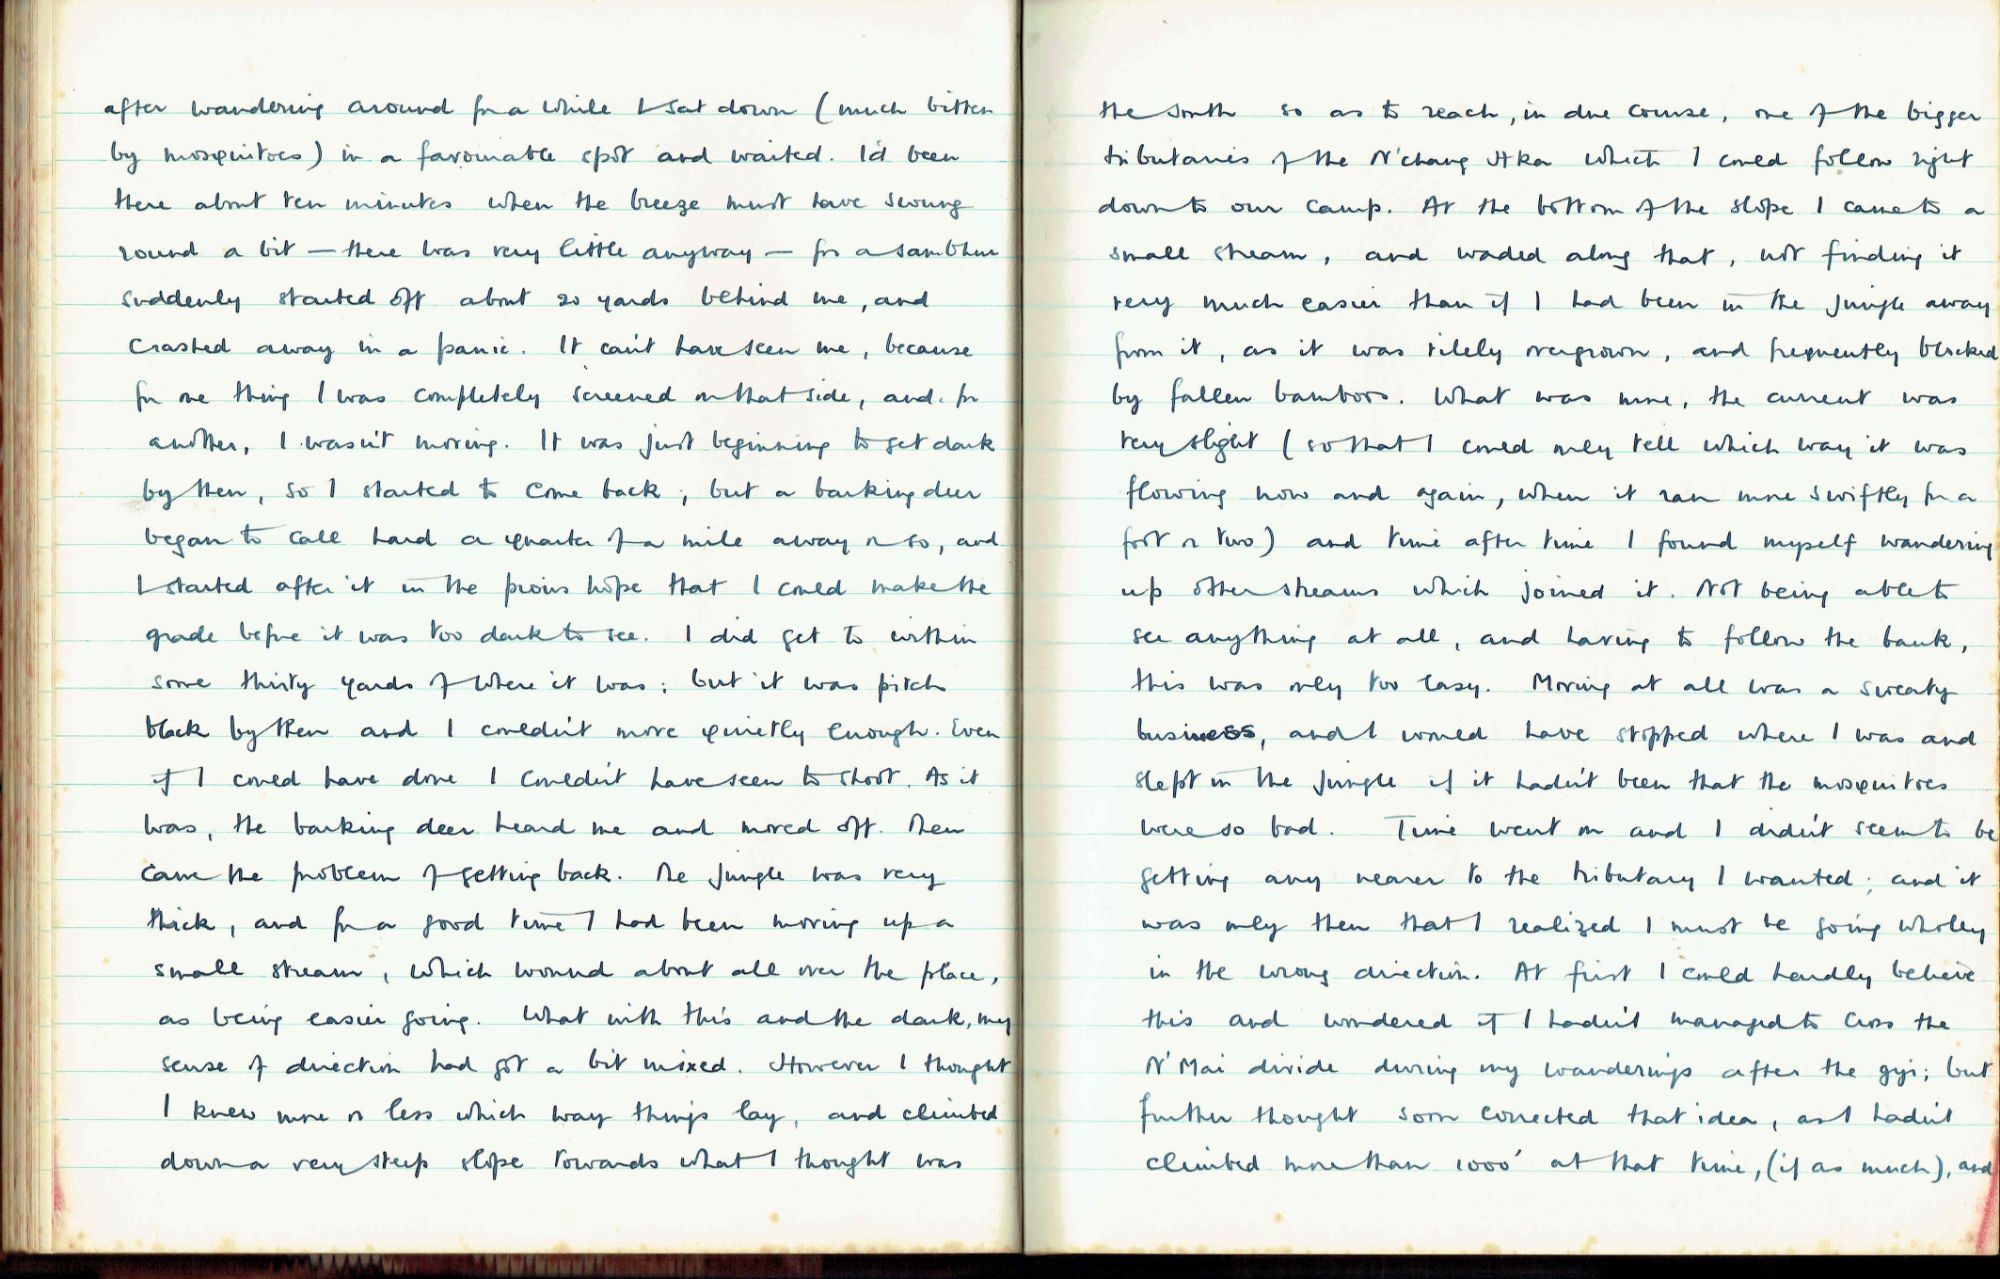 after wandering around for a while I sat down (much bitten
by mosquitoes) in a favourable spot and waited. I'd been
there about ten minutes when the breeze must have swung
round a bit — there was very little anyway — for a sambhur
suddenly started off about 20 yards behind me, and
crashed away in a panic. It can't have seen me, because
for one thing I was completely screened on that side, and for
another, I wasn't moving. It was just beginning to get dark
by then, so I started to come back; but a barking deer
began to call hard a quarter of a mile away or so, and
I started after it in the pious hope that I could make the
grade before it was too dark to see. I did get to within
some thirty yards of where it was; but it was pitch
black by then and I couldn't move quietly enough. Even
if I could have done I couldn't have seen to shoot. As it
was, the barking deer heard me and moved off. Then
came the problem of getting back. The jungle was very
thick, and for a good time I had been moving up a
small stream, which wound about all over the place,
as being easier going. What with this and the dark, my
sense of direction had got a bit mixed. However I thought
I knew more or less which way things lay, and climbed
down a very steep slope towards what I thought was
the south so as to reach, in due course, one of the bigger
tributaries of the N'chang Hka which I could follow right
down to our camp. At the bottom of the slope I came to a
small stream, and waded along that, not finding it
very much easier than if I had been in the jungle away
from it, as it was vilely overgrown, and frequently blocked
by fallen bamboos. What was more, the current was
very slight (so that I could only tell which way it was
flowing now and again, when it ran more swiftly for a
foot or two) and time after time I found myself wandering
up other streams which joined it. Not being able to
see anything at all, and having to follow the bank,
this was only too easy. Moving at all was a sweaty
business, and I would have stopped where I was and
slept in the jungle if it hadn't been that the mosquitoes
were so bad. Time went on and I didn't seem to be
getting any nearer to the tributary I wanted; and it
was only then that I realized I must be going wholly
in the wrong direction. At first I could hardly believe
this and wondered if I hadn't managed to cross the
N'Mai divide during my wanderings after the gyi; but
further thought soon corrected that idea, as I hadn't
climbed more than 1000' at that time, (if as much), and